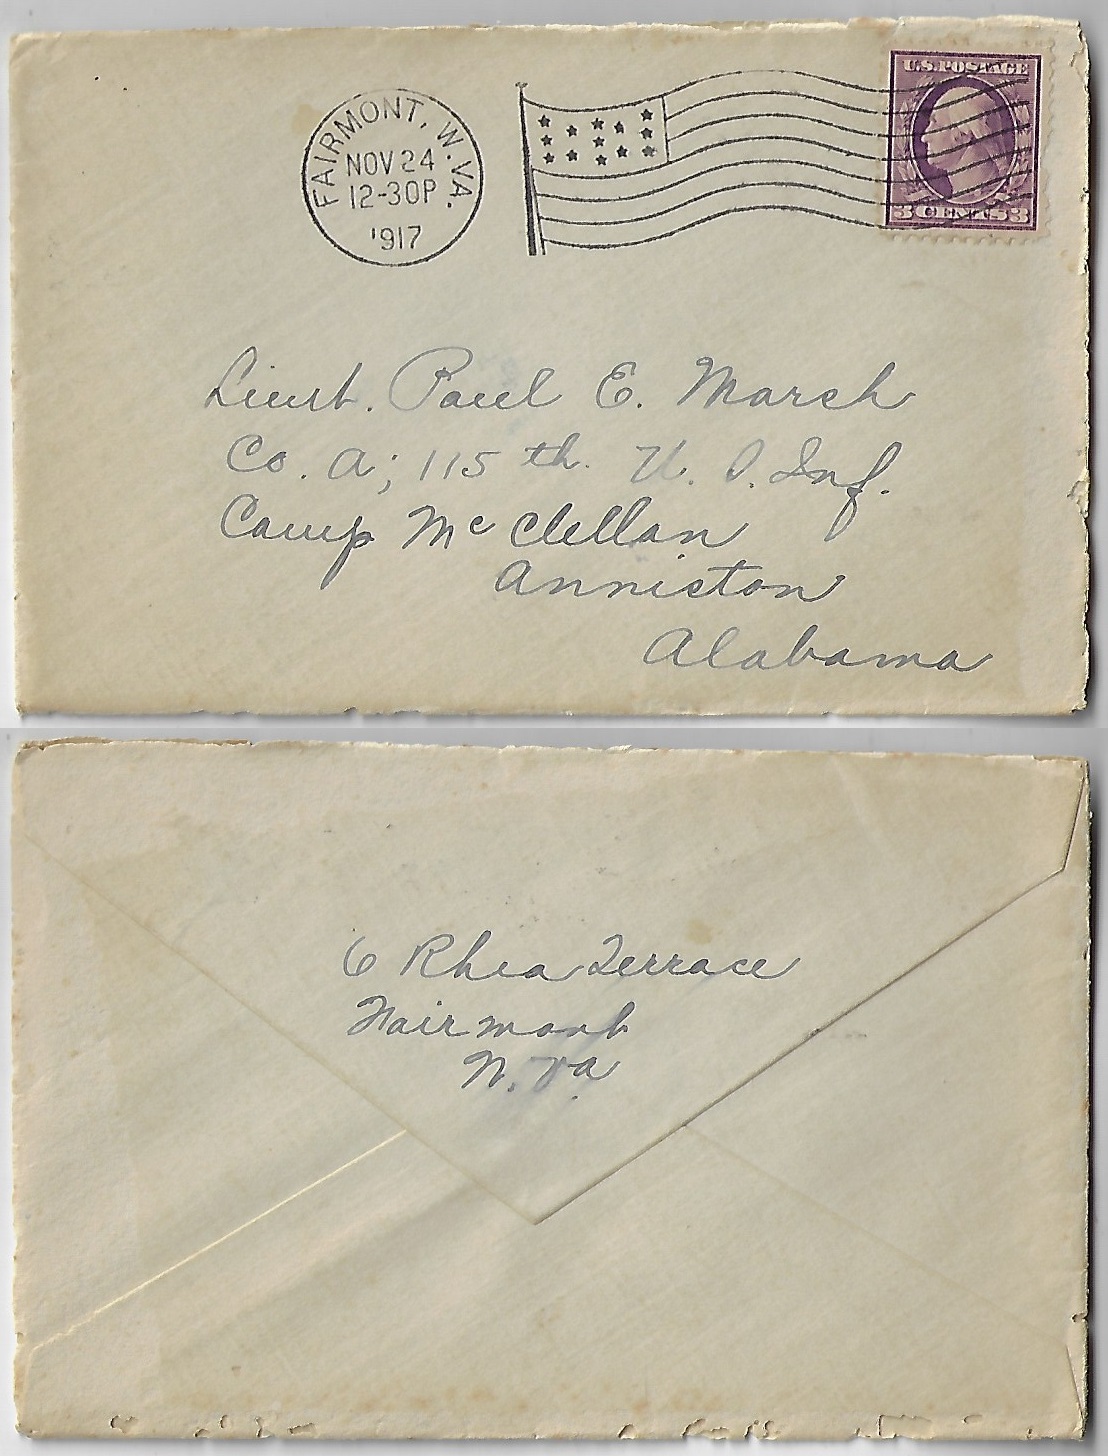 FAIRMONT, W. VA.
NOV 24
12-30P
1917
U.S. POSTAGE
3 CENTS 3
Lieut. Paul E. Marsh
Co. A; 115 th. U. S. Inf.
Camp McClellan
Anniston
Alabama
6 Rhea Terrace
Fairmont
W. Va.